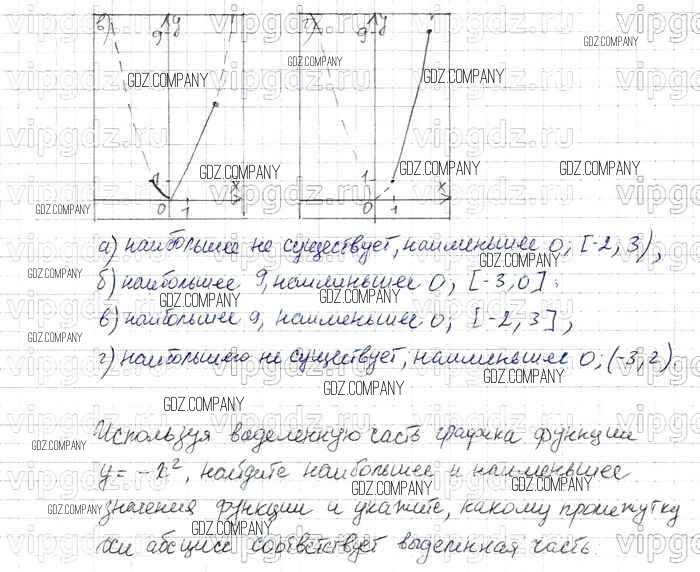 в) y г) y
9 9
1 1
0 1 x 0 1 x
а) наибольшее не существует, наименьшее 0; [-2, 3),
б) наибольшее 9, наименьшее 0; [-3, 0];
в) наибольшее 9, наименьшее 0; [-2, 3],
г) наибольшего не существует, наименьшее 0; (-3, 2).
Используя выделенную часть графика функции
y = -x², найдите наибольшее и наименьшее
значения функции и укажите, какому промежутку
оси абсцисс соответствует выделенная часть.
GDZ.COMPANY
vipgdz.ru